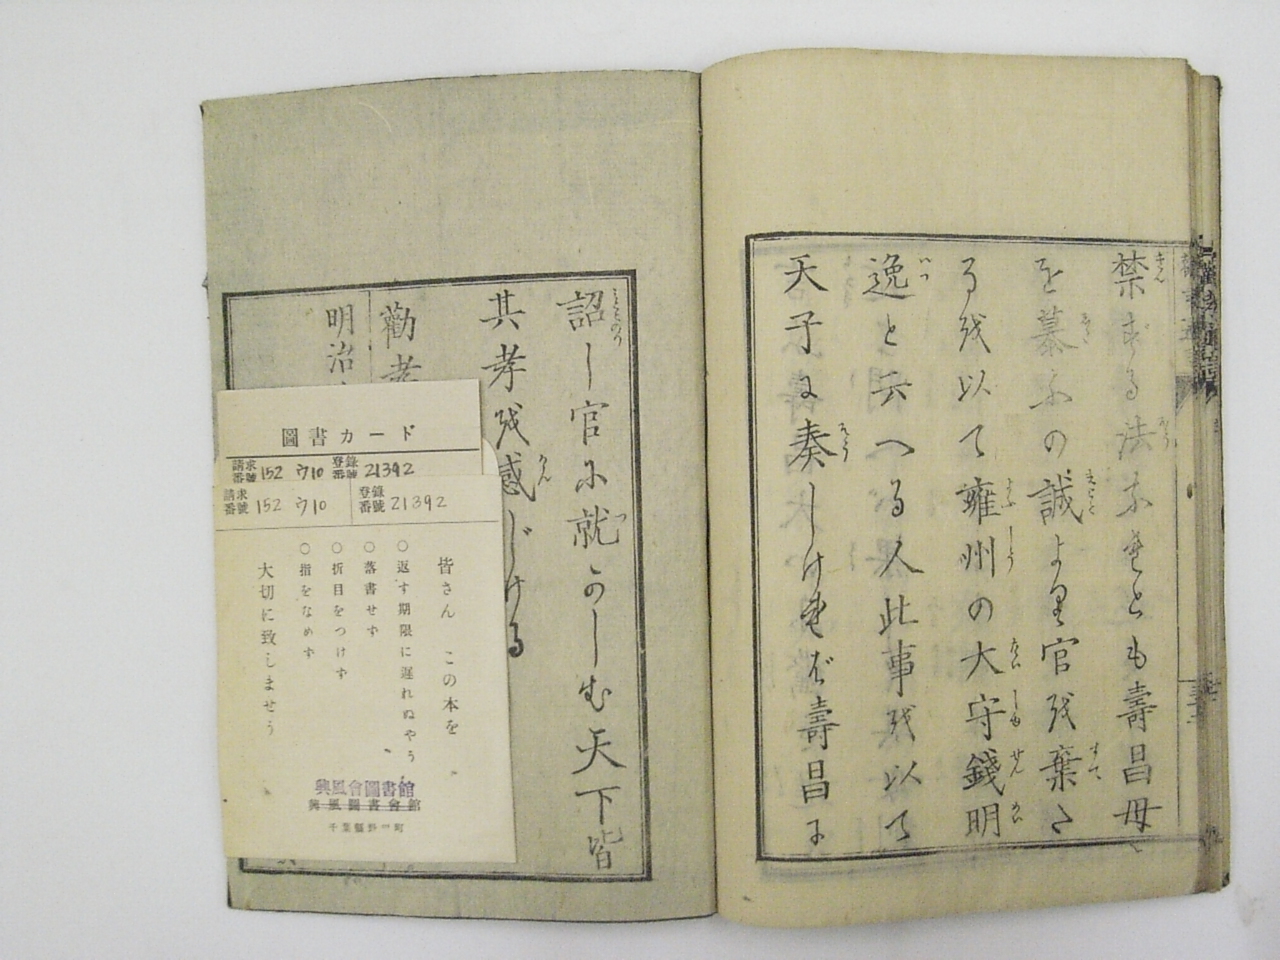 禁ずる法なきとも壽昌母
を慕ふの誠より官を棄さ
るを以て雍州の大守錢明
逸と云へる人此事を以て
天子に奏しければ壽昌に
詔し官に就かしむ天下皆
其孝を感じける
勸孝
明治
圖書カード
請求番號 152 ウ10 登錄番號 21392
請求番號 152 ウ10 登錄番號 21392
皆さん この本を
○返す期限に遅れぬやう
○落書せず
○折目をつけず
○指をなめず
大切に致しませう
興風會圖書館
興風圖書會館
千葉縣野田町